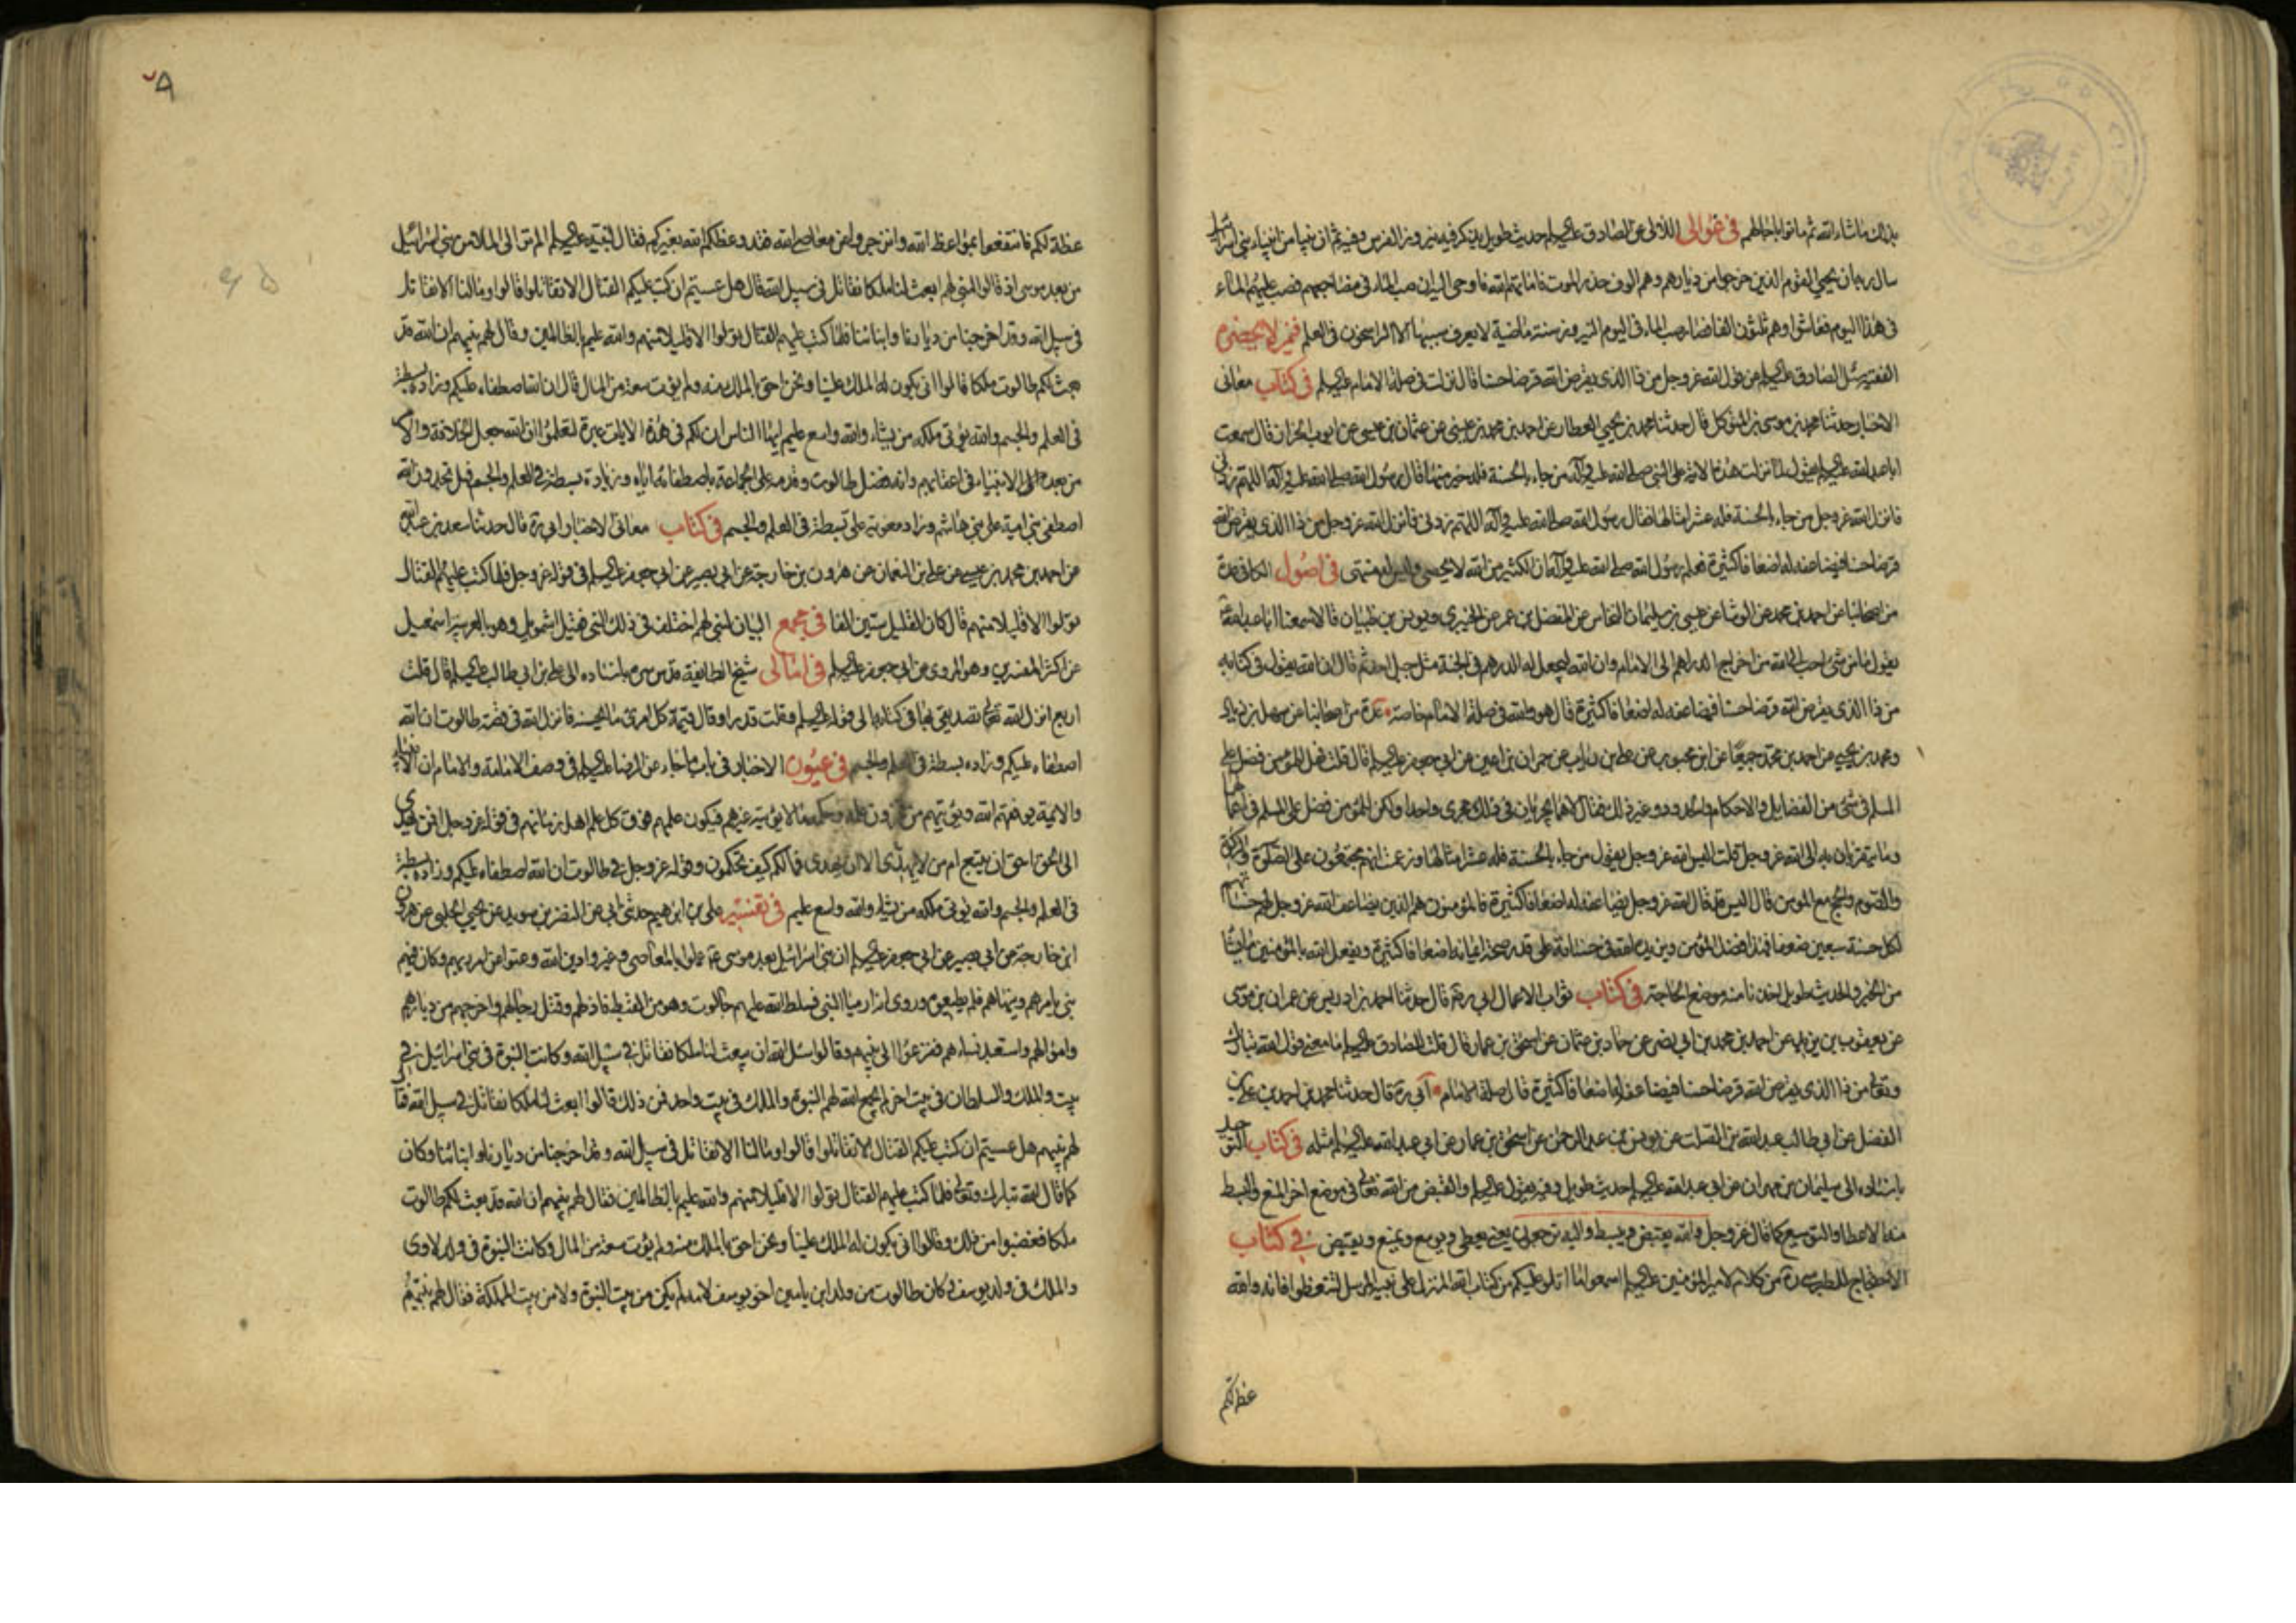 بذلك ماشاء الله ثم ماتوا باجالهم في غوالى اللآلى عن الصادق عليه السلام حديث طويل يذكر فيه نيروز الفرس وفيه ثم ان نبيا من انبياء بني اسرائيل
سال ربه ان يحيي القوم الذين خرجوا من ديارهم وهم الوف حذر الموت فاماتهم الله فاوحى اليه ان صب الماء في مضاجعهم فصب عليهم الماء
في هذا اليوم فعاشوا وهم ثلثون الفا فصار صب الماء في اليوم النيروز سنة ماضية لا يعرف سببها الا الراسخون في العلم فيمن لا يحضره
الفقيه سئل الصادق عليه السلام عن قول الله عز وجل من ذا الذي يقرض الله قرضا حسنا قال نزلت في صلة الامام عليه السلام في كتاب معانى
الاخبار حدثنا محمد بن موسى بن المتوكل قال حدثنا محمد بن يحيي العطار عن احمد بن محمد بن عيسى عن عثمان بن عيسى عن ابي ايوب الخزاز قال سمعت
ابا عبد الله عليه السلام يقول لما نزلت هذه الاية على النبي صلى الله عليه وآله من جاء بالحسنة فله خير منها قال رسول الله صلى الله عليه وآله اللهم زدني
فانزل الله عز وجل من جاء بالحسنة فله عشر امثالها فقال رسول الله صلى الله عليه وآله اللهم زدنى فانزل الله عز وجل من ذا الذي يقرض الله
قرضا حسنا فيضاعفه له اضعافا كثيرة فعلم رسول الله صلى الله عليه وآله ان الكثير من الله لا يحصى وليس له منتهى في اصول الكافى عدة
من اصحابنا عن احمد بن محمد عن الوشا عن عيسى بن سليمان النحاس عن المفضل بن عمر عن الخيبري ويونس بن ظبيان قالا سمعنا ابا عبد الله
يقول ما من شئ احب الى الله من اخراج الدراهم الى الامام وان الله ليجعل له الدرهم في الجنة مثل جبل احد ثم قال ان الله يقول في كتابه
من ذا الذي يقرض الله قرضا حسنا فيضاعفه له اضعافا كثيرة قال هو والله في صلة الامام خاصة عدة من اصحابنا عن سهل بن زياد
ومحمد بن يحيي عن احمد بن محمد جميعا عن ابن محبوب عن علي بن رئاب عن حمران بن اعين عن ابي جعفر عليه السلام قال قلت فهل للمؤمن فضل على
المسلم في شئ من الفضايل والاحكام والحدود وغير ذلك فقال لا هما يجريان في ذلك مجرى واحدا ولكن للمؤمن فضل على المسلم في اعمالهما
وما يتقربان به الى الله عز وجل قلت اليس الله عز وجل يقول من جاء بالحسنة فله عشر امثالها وزعمت انهم مجتمعون على الصلوة والزكوة
والصوم والحج مع المومن قال اليس قد قال الله عز وجل يضاعفه له اضعافا كثيرة فالمؤمنون هم الذين يضاعف الله عز وجل لهم حسناتهم
لكل حسنة سبعين ضعفا فهذا فضل المؤمن ويزيده الله في حسناته على قدر صحة ايمانه اضعافا كثيرة ويفعل الله بالمؤمنين ما يشاء
من الخير والحديث طويل اخذنا منه موضع الحاجة في كتاب ثواب الاعمال ابي ره قال حدثنا احمد بن ادريس عن عمران بن موسى
عن يعقوب بن يزيد عن احمد بن محمد بن ابي نصر عن حماد بن عثمان عن اسحق بن عمار قال قلت للصادق عليه السلام ما معنى قول الله تبارك
وتعالى من ذا الذي يقرض الله قرضا حسنا فيضاعفه له اضعافا كثيرة قال صلة الامام ابي ره قال حدثنا محمد بن احمد بن علي بن
الفضل عن ابي طالب عبد الله بن الصلت عن يونس بن عبد الرحمن عن اسحق بن عمار عن ابي عبد الله عليه السلام مثله في كتاب التوحيد
باسناده الى سليمان بن مهران عن ابي عبد الله عليه السلام حديث طويل وفيه يقول عليه السلام والقبض من الله تعالى في موضع اخر المنع والبسط
منه الاعطاء والتوسيع كما قال عز وجل والله يقبض ويبسط واليه ترجعون يعني يعطى ويوسع ويمنع ويقبض في كتاب
الاحتجاج للطبرسي ره من كلام لامير المؤمنين عليه السلام اسمعوا ما اتلو عليكم من كتاب الله المنزل على نبيه المرسل لتتعظوا فانه والله
عظة لكم
عظة لكم فانتفعوا بمواعظ الله وانزجروا عن معاصي الله فقد وعظكم الله بغيركم فقال لنبيه عليه السلام الم تر الى الملا من بني اسرائيل
من بعد موسى اذ قالوا لنبي لهم ابعث لنا ملكا نقاتل في سبيل الله قال هل عسيتم ان كتب عليكم القتال الا تقاتلوا قالوا ومالنا الا نقاتل
في سبيل الله وقد اخرجنا من ديارنا وابنائنا فلما كتب عليهم القتال تولوا الا قليلا منهم والله عليم بالظالمين وقال لهم نبيهم ان الله قد
بعث لكم طالوت ملكا قالوا انى يكون له الملك علينا ونحن احق بالملك منه ولم يؤت سعة من المال قال ان الله اصطفاه عليكم وزاده بسطة
في العلم والجسم والله يؤتى ملكه من يشاء والله واسع عليم ايها الناس ان لكم في هذه الايات عبرة لتعلموا ان الله جعل الخلافة والامر
من بعده الى الانبياء في اعقابهم وانه فضل طالوت وقدمه على الجماعة باصطفائه اياه وزيادة بسطة في العلم والجسم فهل تجدون الله
اصطفى بني امية على بني هاشم وزاد معوية على بسطة في العلم والجسم في كتاب معانى الاخبار ابي ره قال حدثنا سعد بن عبد الله
عن احمد بن محمد بن عيسى عن علي بن النعمان عن هرون بن خارجة عن ابي بصير عن ابي جعفر عليه السلام في قوله عز وجل فلما كتب عليهم القتال
تولوا الا قليلا منهم قال كان القليل ستين الفا في مجمع البيان لنبي لهم اختلف في ذلك النبي فقيل اشمويل وهو بالعربية اسمعيل
عن اكثر المفسرين وهو المروى عن ابي جعفر عليه السلام في امالى شيخ الطايفة قدس سره باسناده الى علي بن ابي طالب عليه السلام قال قلت
اربع انزل الله تعالى تصديقي بها في كتابه الى قوله عليه السلام وقلت قدر او قال قيمة كل امرئ ما يحسنه فانزل الله في قصة طالوت ان الله
اصطفاه عليكم وزاده بسطة في العلم والجسم في عيون الاخبار في باب ما جاء عن الرضا عليه السلام في وصف الامامة والامام ان الانبياء
والائمة يوفقهم الله ويؤتيهم من مخزون علمه وحكمه ما لا يؤتيه غيرهم فيكون علمهم فوق كل علم اهل زمانهم في قوله عز وجل افمن يهدى
الى الحق احق ان يتبع ام من لا يهدى الا ان يهدى فما لكم كيف تحكمون وقوله عز وجل في طالوت ان الله اصطفاه عليكم وزاده بسطة
في العلم والجسم والله يؤتى ملكه من يشاء والله واسع عليم في تفسير علي بن ابراهيم حدثني ابي عن النضر بن سويد عن يحيي الحلبي عن هرون
ابن خارجة عن ابي بصير عن ابي جعفر عليه السلام ان بني اسرائيل بعد موسى ع عملوا بالمعاصي وغيروا دين الله وعتوا عن امر ربهم وكان فيهم
نبي يامرهم وينهاهم فلم يطيعوه وروى انه ارميا النبي فسلط الله عليهم جالوت وهو من القبط فاذلهم وقتل رجالهم واخرجهم من ديارهم
واموالهم واستعبد نساءهم ففزعوا الى نبيهم وقالوا سل الله ان يبعث لنا ملكا نقاتل في سبيل الله وكانت النبوة في بني اسرائيل في
بيت والملك والسلطان في بيت اخر لم يجمع الله لهم النبوة والملك في بيت واحد فمن ذلك قالوا ابعث لنا ملكا نقاتل في سبيل الله فقال
لهم نبيهم هل عسيتم ان كتب عليكم القتال الا تقاتلوا قالوا ومالنا الا نقاتل في سبيل الله وقد اخرجنا من ديارنا وابنائنا وكان
كما قال الله تبارك وتعالى فلما كتب عليهم القتال تولوا الا قليلا منهم والله عليم بالظالمين فقال لهم نبيهم ان الله قد بعث لكم طالوت
ملكا فغضبوا من ذلك وقالوا انى يكون له الملك علينا ونحن احق بالملك منه ولم يؤت سعة من المال وكانت النبوة في ولد لاوى
والملك في ولد يوسف وكان طالوت من ولد ابن يامين اخو يوسف لامه لم يكن من بيت النبوة ولا من بيت المملكة فقال لهم نبيهم